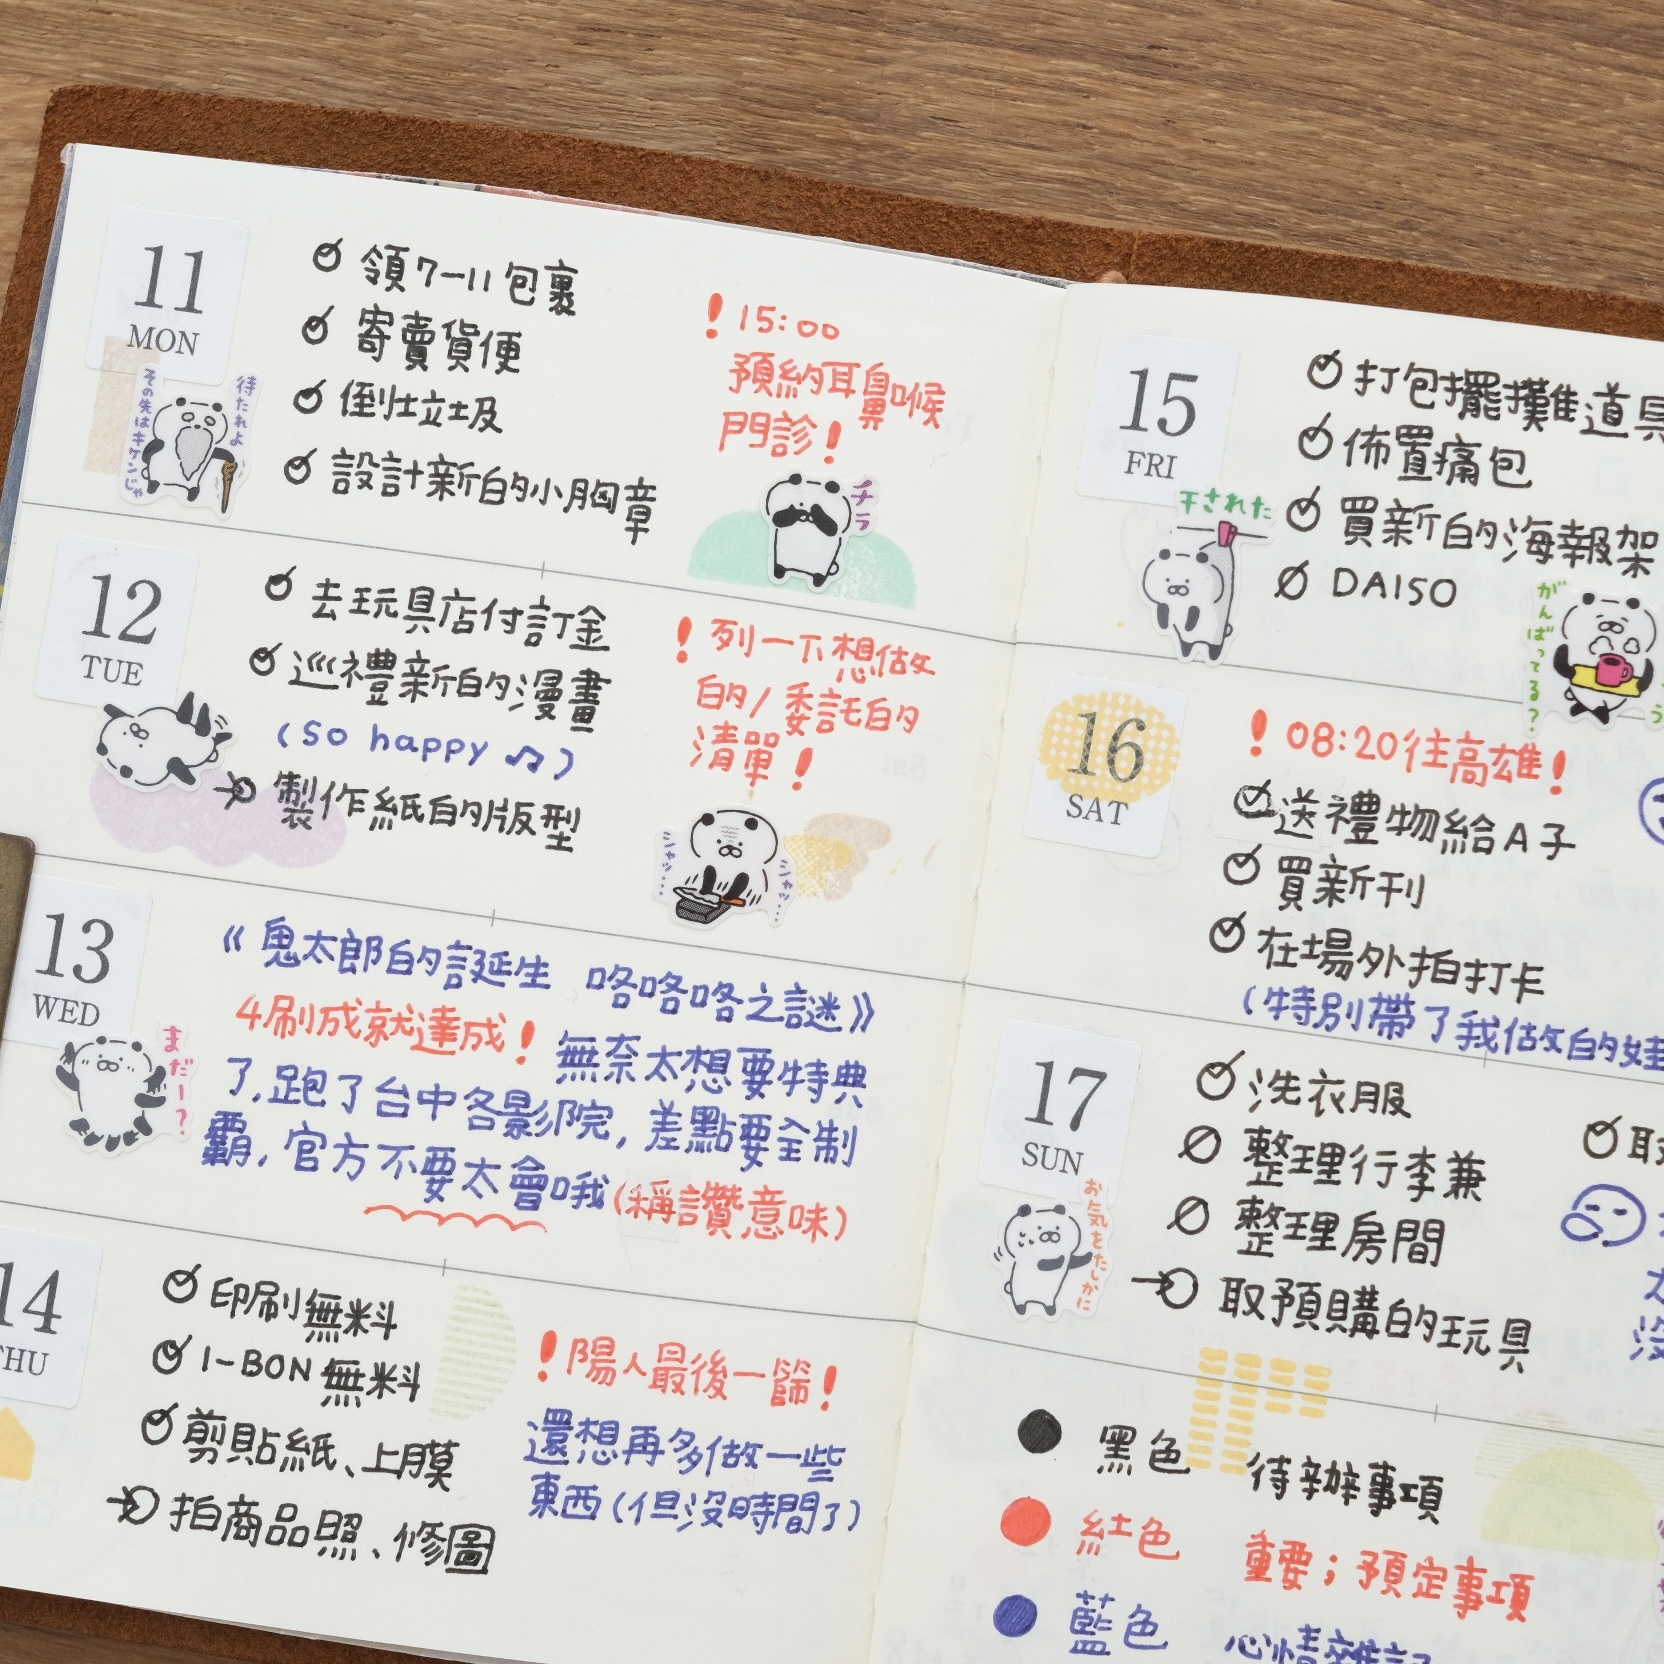 11
MON
領7-11包裹
寄賣貨便
倒垃圾
設計新的小胸章
!15:00
預約耳鼻喉
門診!
待たれよ
その先はキケンじゃ
チラ
12
TUE
去玩具店付訂金
巡禮新的漫畫
(so happy♫)
製作紙的版型
!列一下想做
的/委託的
清單!
シャッ……
シャッ……
13
WED
《鬼太郎的誕生 咯咯咯之謎》
4刷成就達成!無奈太想要特典
了,跑了台中各影院,差點要全制
霸,官方不要太會哦(稱讚意味)
まだー?
14
THU
印刷無料
I-BON無料
剪貼紙、上膜
拍商品照、修圖
!陽人最後一篩!
還想再多做一些
東西(但沒時間了)
15
FRI
打包擺攤道具
佈置痛包
買新的海報架
DAISO
干された
がんばってる?
16
SAT
!08:20往高雄!
送禮物給A子
買新刊
在場外拍打卡
(特別帶了我做的娃
17
SUN
洗衣服
整理行李兼
整理房間
取預購的玩具
お気をたしかに
取
太
沒
黑色 待辦事項
紅色 重要;預定事項
藍色 心情雜記